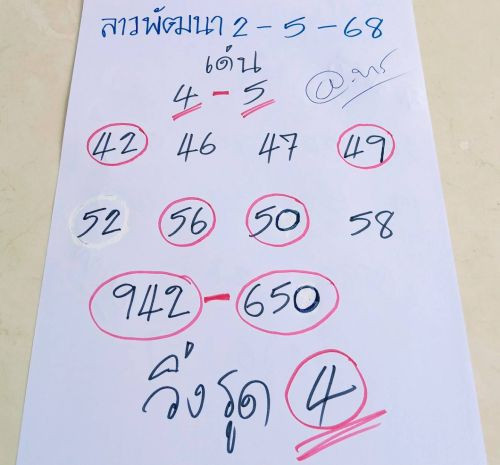 ลาวพัฒนา 2 - 5 - 68
เด่น
4 - 5
42 46 47 49
52 56 50 58
942 - 650
วิ่งรูด 4